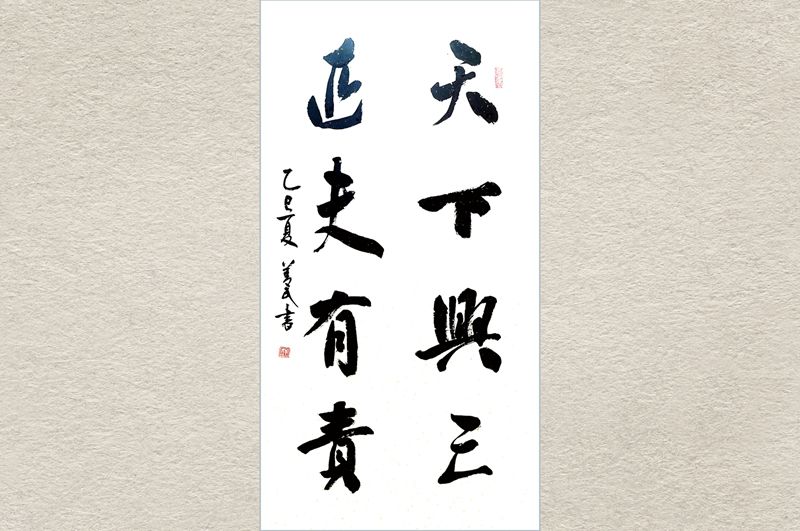 天下興亡
匹夫有責
乙巳夏 書